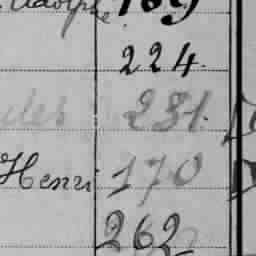 Adolphe 169
224.
231.
Henri 170
262